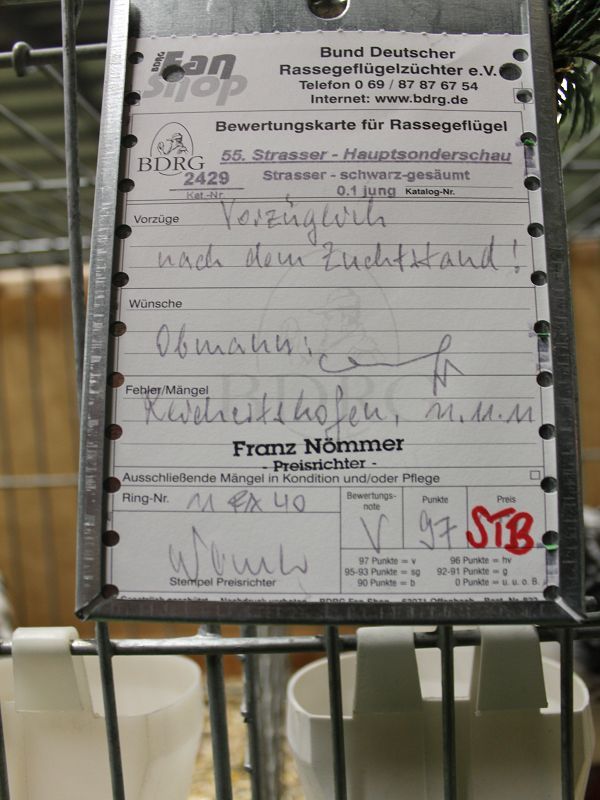 BDRG Fan Shop
Bund Deutscher
Rassegeflügelzüchter e.V.
Telefon 0 69 / 87 87 67 54
Internet: www.bdrg.de
Bewertungskarte für Rassegeflügel
BDRG
55. Strasser - Hauptsonderschau
2429
Strasser - schwarz-gesäumt
Kat.-Nr.
0.1 jung Katalog-Nr.
Vorzüge Vorzüglich
nach dem Zuchtstand!
Wünsche
Obmann:
BDRG
Fehler/Mängel
Reichertshofen, 11.11.11
Franz Nömmer
- Preisrichter -
Ausschließende Mängel in Kondition und/oder Pflege
Ring-Nr. 11 EX 40
Bewertungs-note Punkte Preis
V 97 STB
Stempel Preisrichter
97 Punkte = v 96 Punkte = hv
95-93 Punkte = sg 92-91 Punkte = g
90 Punkte = b 0 Punkte = u. u. o. B.